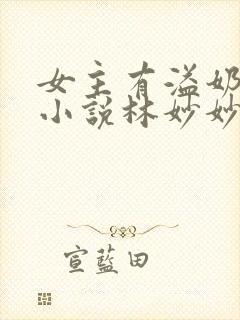 女主有溢奶
小説林妙妙
宣藍田